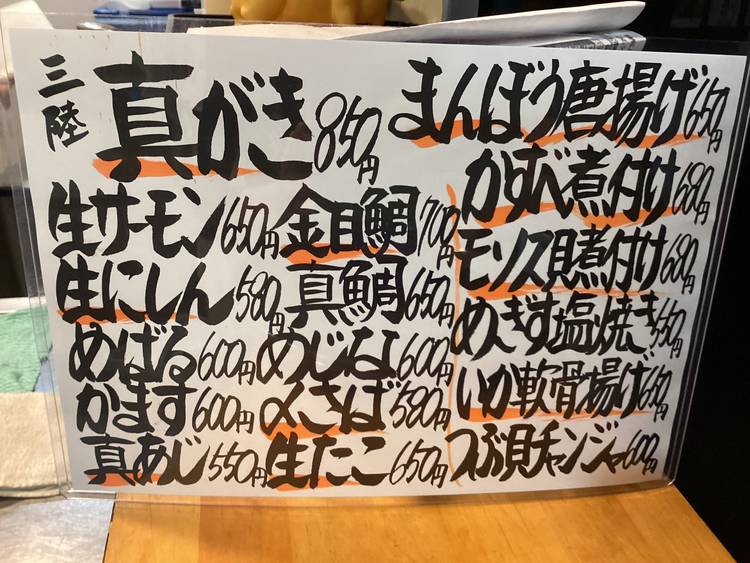 三陸 真がき 850円
生サーモン 650円
生にしん 580円
めばる 600円
かます 600円
真あじ 550円
金目鯛 700円
真鯛 650円
めじな 600円
〆さば 580円
生たこ 650円
まんぼう唐揚げ 650円
かすべ煮付け 680円
モソス貝煮付け 680円
めぎす塩焼き 550円
いか軟骨揚げ 650円
つぶ貝チャンジャ 600円